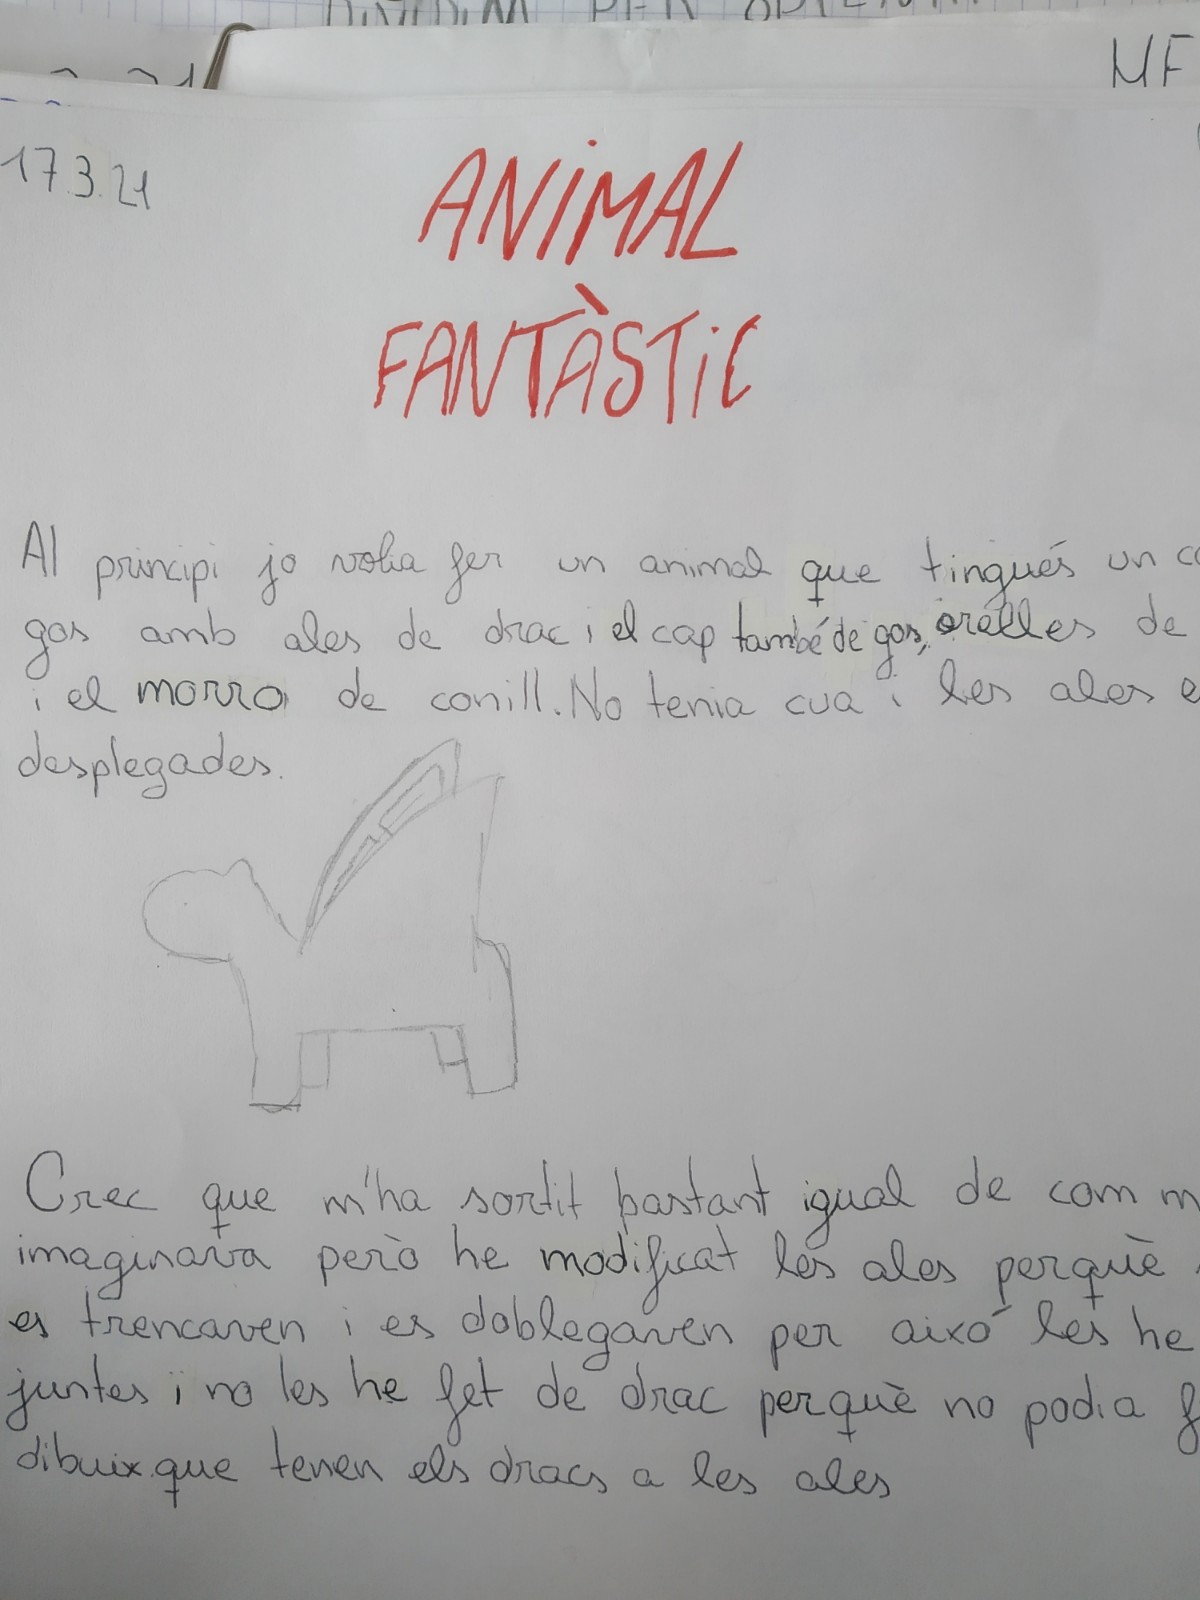 MF
17.3.21
ANIMAL
FANTÀSTIC
Al principi jo volia fer un animal que tingués un
gos amb ales de drac i el cap també de gos, orelles de
i el morro de conill. No tenia cua i les ales
desplegades.
Crec que m'ha sortit bastant igual de com m
imaginava però he modificat les ales perquè
es trencaven i es doblegaven per aixó les he
juntes i no les he fet de drac perquè no podia
dibuix que tenen els dracs a les ales